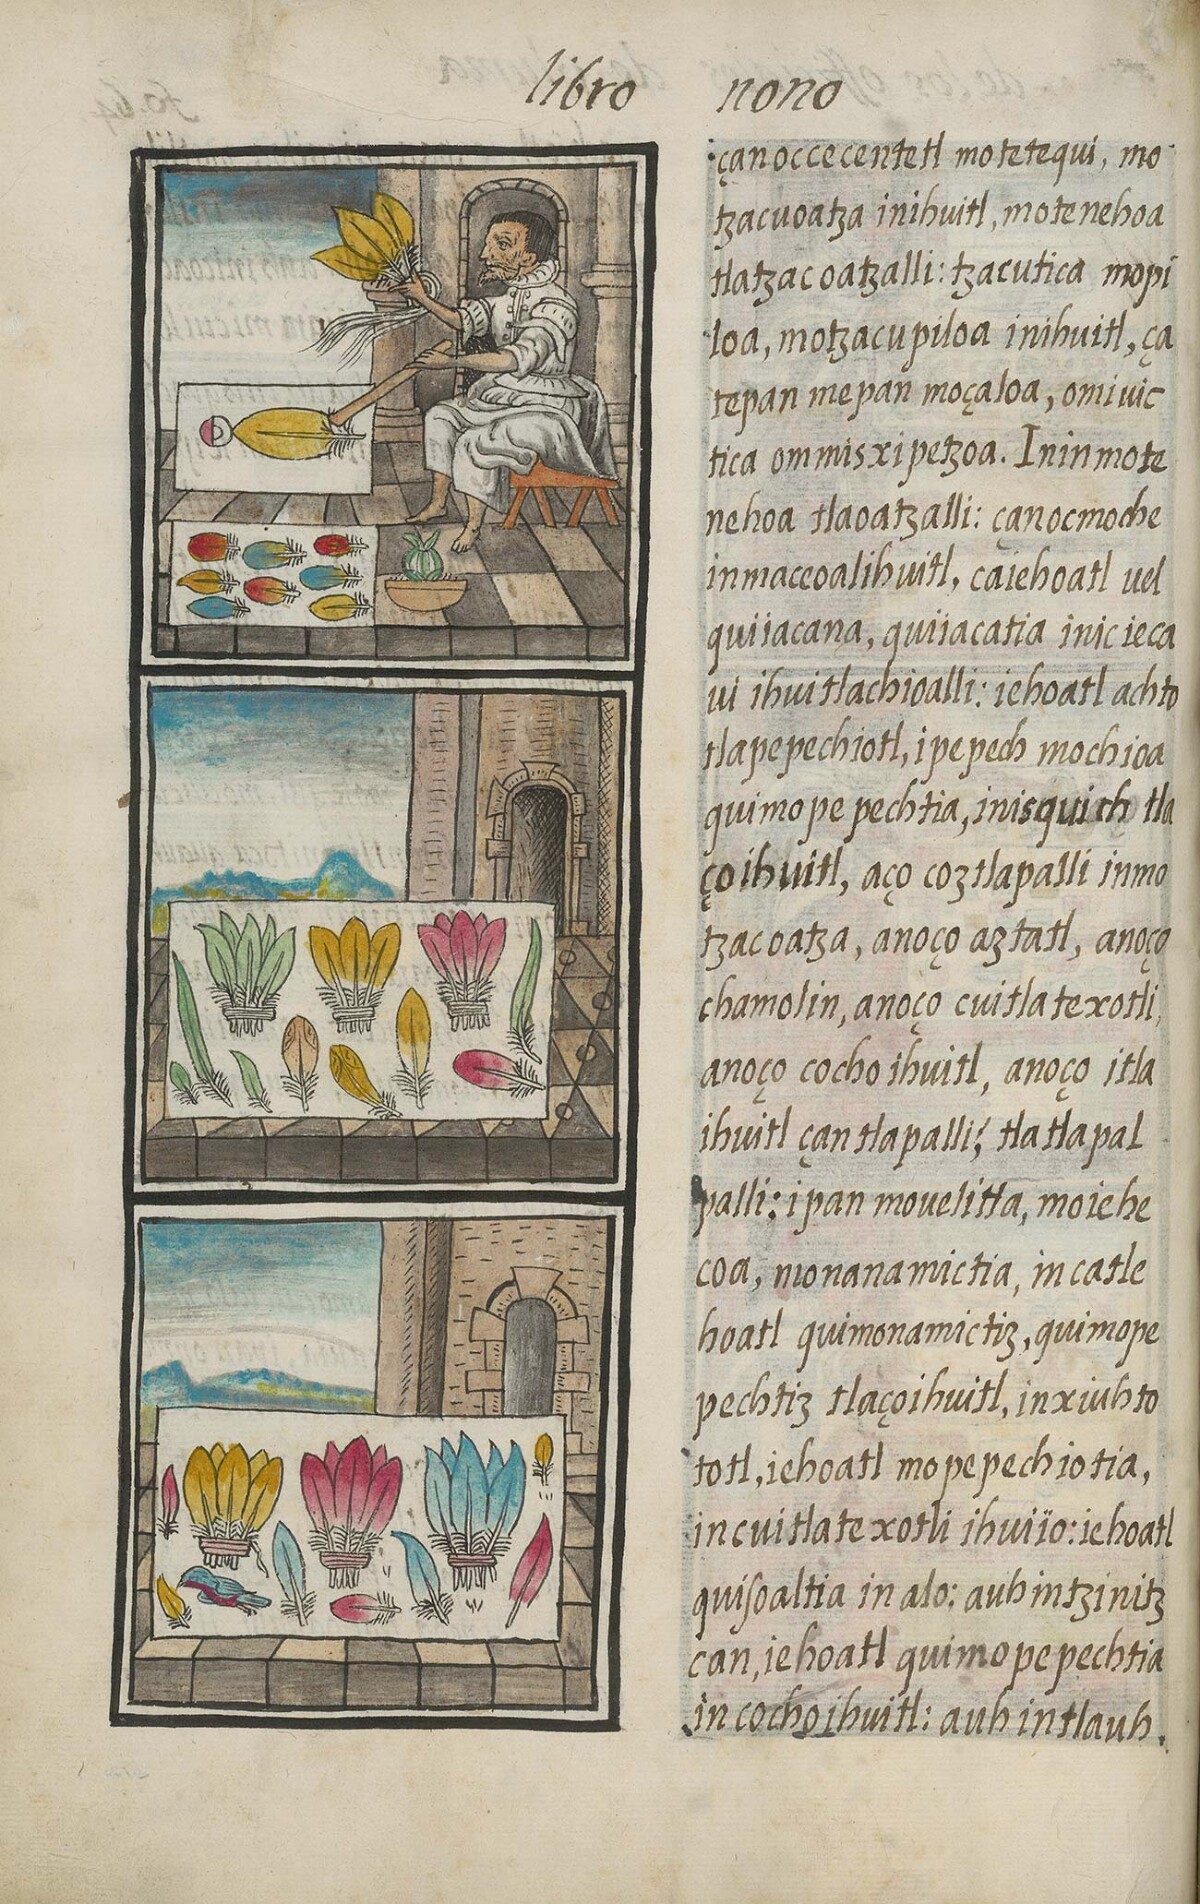 libro nono
çanoccecentetl motetequi, mo
tzacuoatza inihuitl, motenehoa
tlatzacoatzalli: tzacutica mopi
loa, motzacupiloa inihuitl, ça
tepan mepan moçaloa, omiuic
tica ommisxipetzoa. Ininmote
nehoa tlaoatzalli: çanocmoche
inmaceoalihuitl, caiehoatl uel
quiiacana, quiiacatia inicieca
ui ihuitlachioalli: iehoatl achto
tlapepechiotl, ipepech mochioa
quimopepechtia, inisquich tla
çoihuitl, aço coztlapalli inmo
tzacoatza, anoço aztatl, anoço
chamolin, anoço cuitlatexotli,
anoço cochoihuitl, anoço itla
ihuitl çantlapalli; tlatlapal
palli: ipan mouelitta, moiehe
coa, monanamictia, incatle
hoatl quimonamictiz, quimope
pechtiz tlaçoihuitl, inxiuhto
totl, iehoatl mopepechiotia,
incuitlatexotli ihuiio: iehoatl
quisoaltia in alo: auh intzinitz
can, iehoatl quimopepechtia
incochoihuitl: auh intlauh.